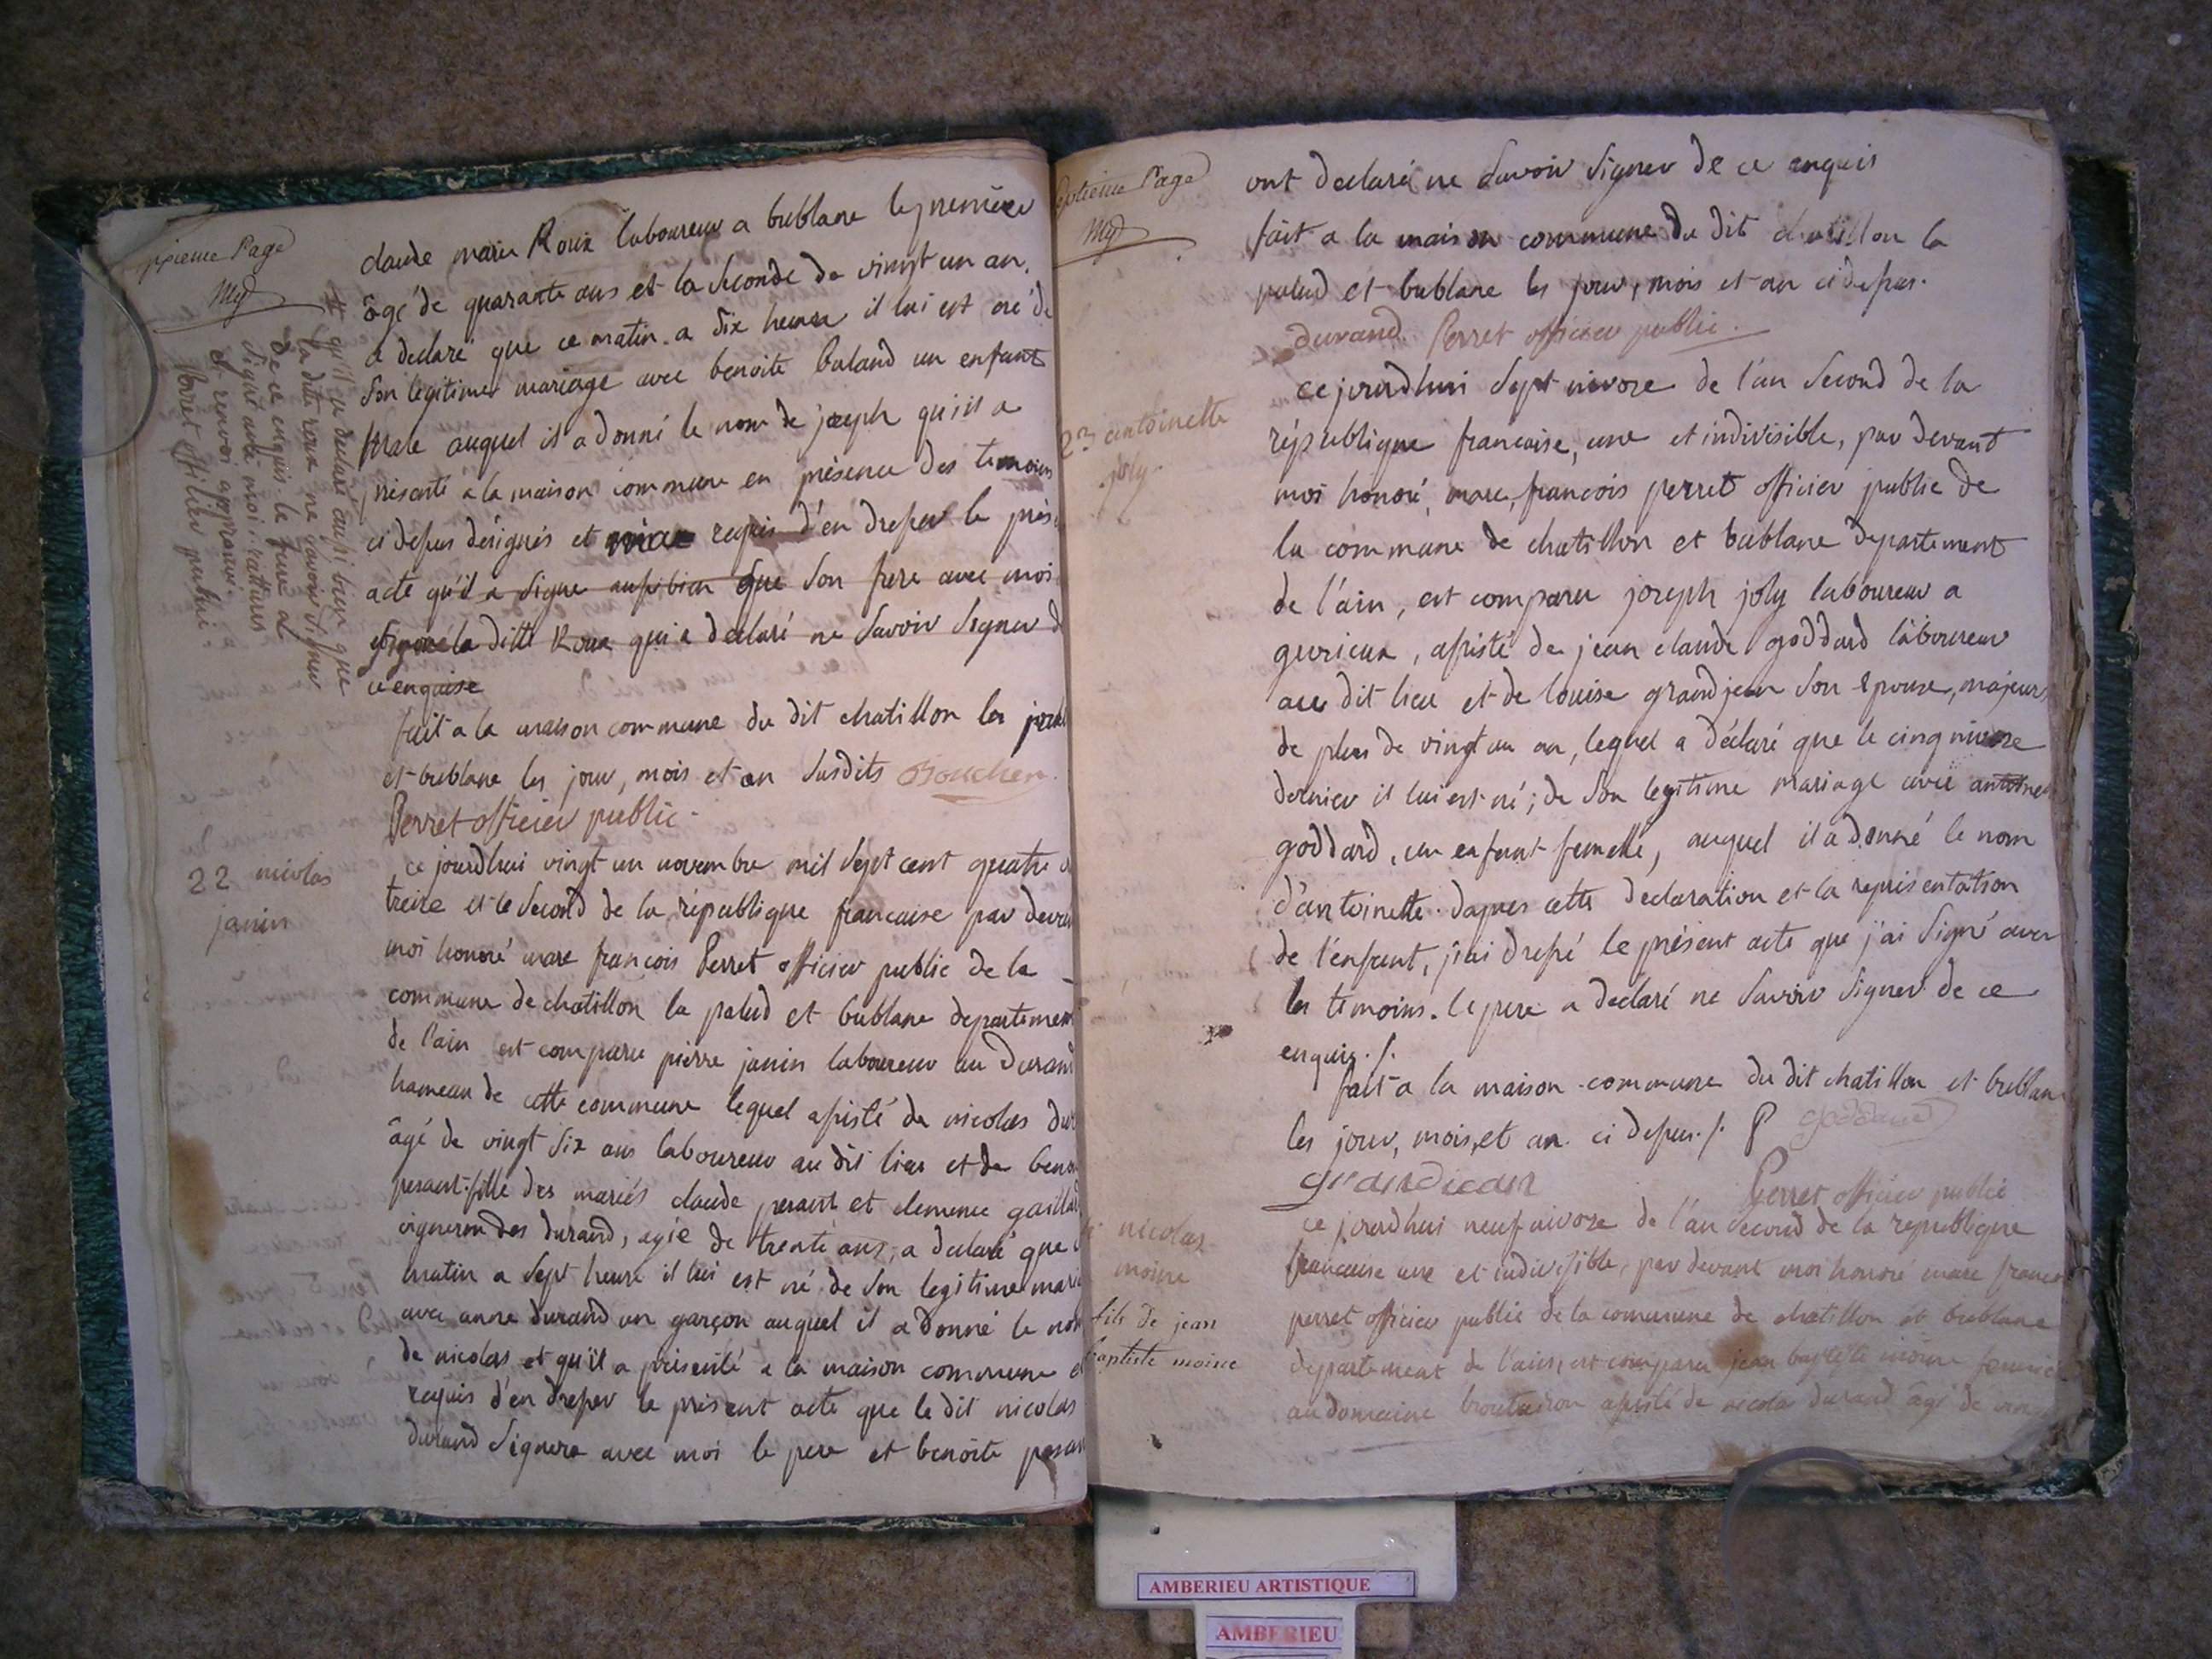 sixieme Page
claude marie Roux laboureur a bublane le premier
âgé de quarante ans et la seconde de vingt un an,
a declaré que ce matin a six heure il lui est né de
son legitime mariage avec benoite baland un enfant
Male auquel il a donné le nom de joseph qu'il a
présenté a la maison commune en présence des temoins
ci depus désignés et requis d'en dresser le prés
acte qu'il a signe aussi bien que son frere avec moi
la ditte Roux qui a declaré ne savoir signer d
ce enquise
fait a la maison commune du dit chatillon la palud
et bublane les jour, mois et an susdits Boucher
Perret officier public
# qu'il a declaré aussi bien que
la ditte roux ne savoir signer
de ce enquis le frere a
signé avec moi. ratures
et renvoi approuvé.
Perret officier public
22 nicolas
janin
ce jourdhui vingt un novembre mil sept cent quatre v
treize et le second de la république francaise par devan
moi honoré marc françois Perret officier public de la
commune de chatillon la palud et bublane departement
de l'ain est comparu pierre janin laboureur au durand
hameau de cette commune lequel assisté de nicolas dur
âgé de vingt six ans laboureur au dit lieu et de beno
pesant fille des mariés claude pesant et clemence gaillar
vigneron des durand, agée de trente ans, a declaré que c
matin a sept heure il lui est né de son legitime maria
avec anne durand un garçon auquel il a donné le nom
de nicolas et qu'il a présenté a la maison commune et
requis d'en dresser le présent acte que le dit nicolas
durand signera avec moi le pere et benoite pesan
septieme Page
ont declaré ne savoir signer de ce enquis
fait a la maison commune du dit chatillon la
palud et bublane les jour, mois et an ci depus.
durand. Perret officier public.
antoinette
joly
ce jourdhui sept nivose de l'an second de la
république francaise, une et indivisible, par devant
moi honoré, marc, francois perret officier public de
la commune de chatillon et bublane departement
de l'ain, est comparu joseph joly laboureur a
gevrieux, assisté de jean claude goddard laboureur
au dit lieu et de louise grandjean son epouse, majeurs
de plus de vingt un an, lequel a déclaré que le cinq nivose
dernier il lui est né; de son legitime mariage avec antoine
goddard, un enfant femelle, auquel il a donné le nom
d'antoinette. dapres cette declaration et la représentation
de l'enfant, j'ai dressé le présent acte que j'ai signé avec
les temoins. le pere a declaré ne savoir signer de ce
enquis./.
fait a la maison commune du dit chatillon et bublan
les jour, mois, et an ci depus./. P goddard
grandjean
Perret officier public
nicolas
moine
fils de jean
baptiste moine
ce jourdhui neuf nivose de l'an second de la republique
francaise une et indivisible, par devant moi honoré marc franco
perret officier public de la commune de chatillon et bublane
departement de l'ain, est comparu jean baptiste moine fermie
au domaine assisté de nicolas durand âgé de
AMBERIEU ARTISTIQUE
AMBERIEU